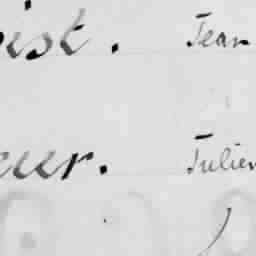 oist. Jean
eur. Julien